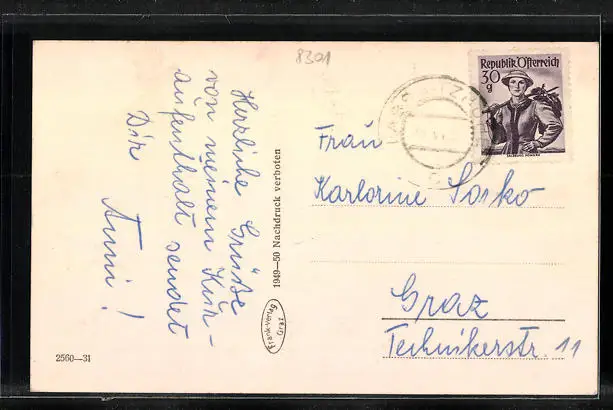 8301
Herzliche Grüße
von meinem Kur-
aufenthalt sendet
Dir
Anni!
1949—50 Nachdruck verboten
Frank-Verlag
Graz
2560—31
Republik Österreich
30
g
Frau
Karlorine Sorko
Graz
Technikerstr. 11